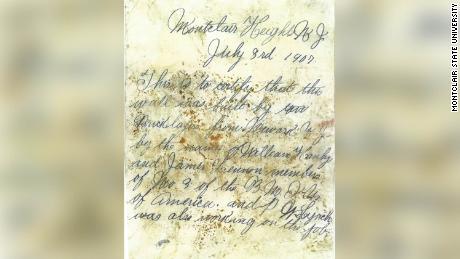 Montclair Heights N.J.
July 3rd 1907.
This is to certify that this
wall was built by two
Bricklayers from Newark N.J.
by the name of William Hanly
and James Lennon members
of No 3 of the B.M.I.U.
of America. and
was also working on the job
MONTCLAIR STATE UNIVERSITY